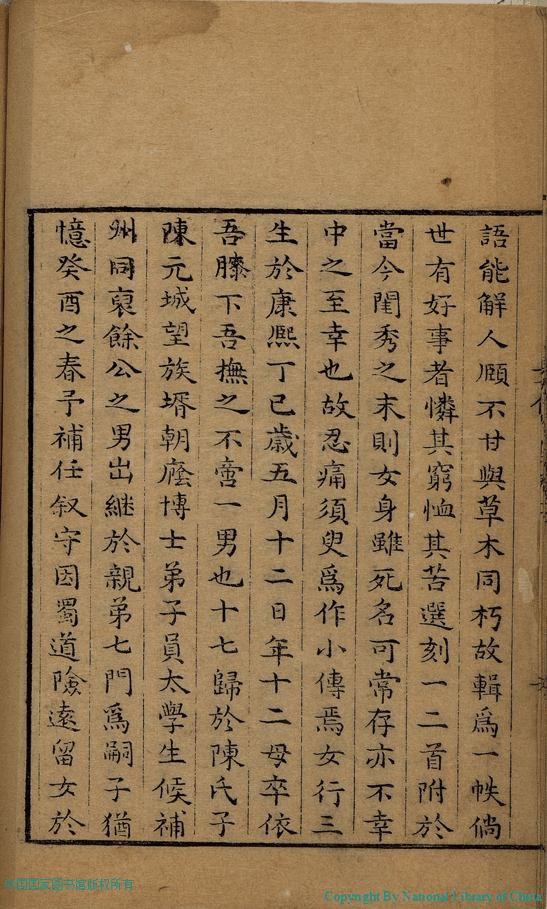 語能解人願不甘與草木同朽故輯爲一帙倘
世有好事者憐其窮恤其苦選刻一二首附於
當今閨秀之末則女身雖死名可常存亦不幸
中之至幸也故忍痛須臾爲作小傳焉女行三
生於康熙丁巳歲五月十二日年十二母卒依
吾膝下吾撫之不啻一男也十七歸於陳氏子
陳元城望族壻朝廕博士弟子員太學生候補
州同裒餘公之男出継於親弟七門爲嗣子猶
憶癸酉之春予補任叙守因蜀道險遠留女於
中国国家图书馆版权所有
Copyright By National Library of China